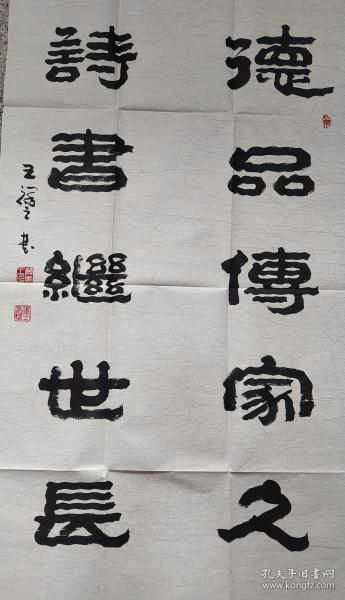 德品傳家久
詩書繼世長
孔夫子旧书网
www.kongfz.com